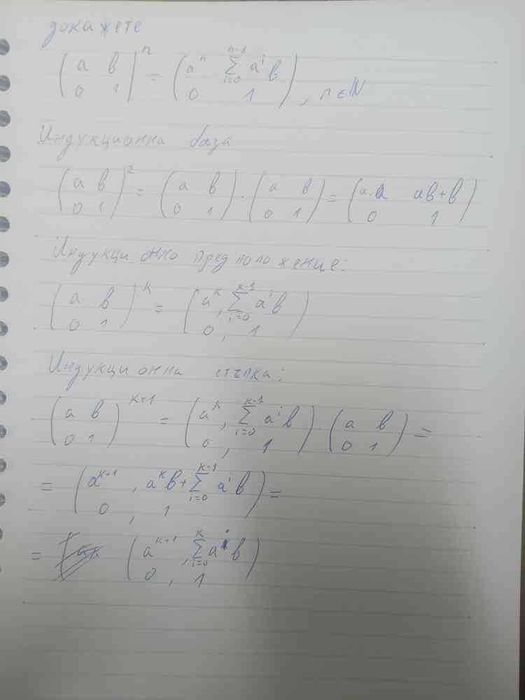 докажете
(a b; 0 1)^n = (a^n ∑_{i=0}^{n-1} a^i b; 0 1), n∈ℕ
Индукционна база
(a b; 0 1)^2 = (a b; 0 1) · (a b; 0 1) = (a.a ab+b; 0 1)
Индукционно предположение:
(a b; 0 1)^k = (a^k, ∑_{i=0}^{k-1} a^i b; 0, 1)
Индукционна стъпка:
(a b; 0 1)^{k+1} = (a^k, ∑_{i=0}^{k-1} a^i b; 0, 1) (a b; 0 1) =
= (a^{k+1}, a^k b + ∑_{i=0}^{k-1} a^i b; 0, 1) =
= (a^{k+1}, ∑_{i=0}^{k} a^i b; 0, 1)